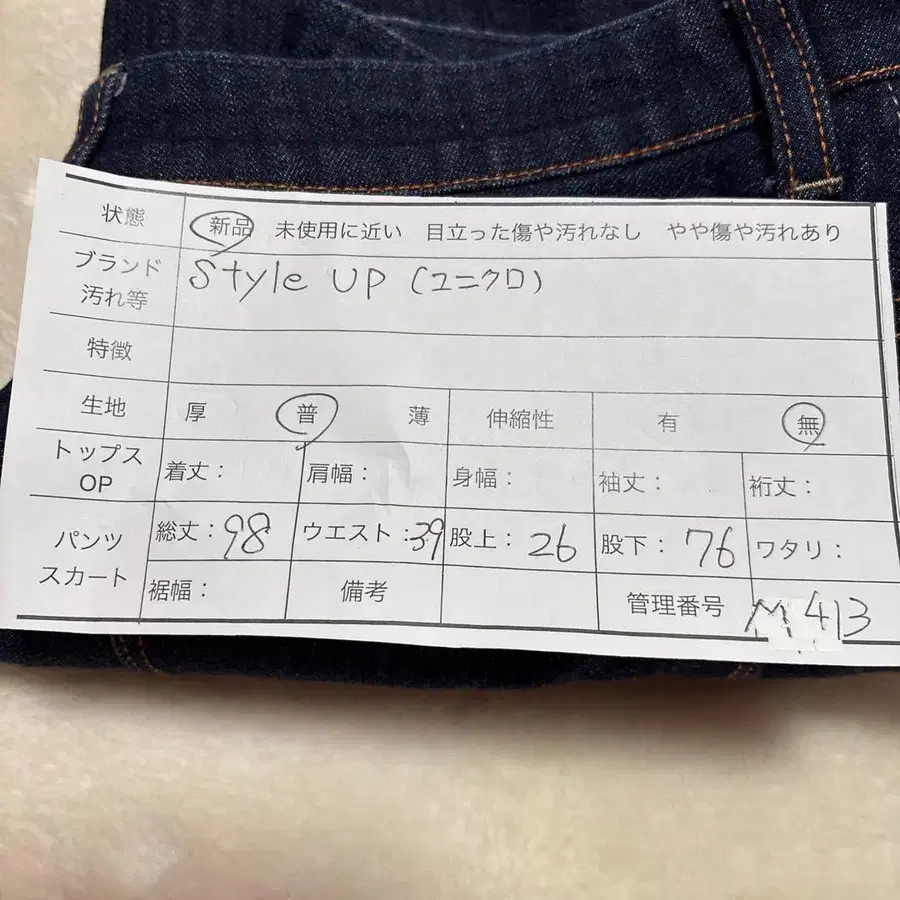 状態 新品 未使用に近い 目立った傷や汚れなし やや傷や汚れあり
ブランド 汚れ等 Style UP (ユニクロ)
特徴
生地 厚 普 薄 伸縮性 有 無
トップス OP 着丈： 肩幅： 身幅： 袖丈： 裄丈：
パンツ スカート 総丈：98 ウエスト：39 股上：26 股下：76 ワタリ：
裾幅： 備考 管理番号 M 413